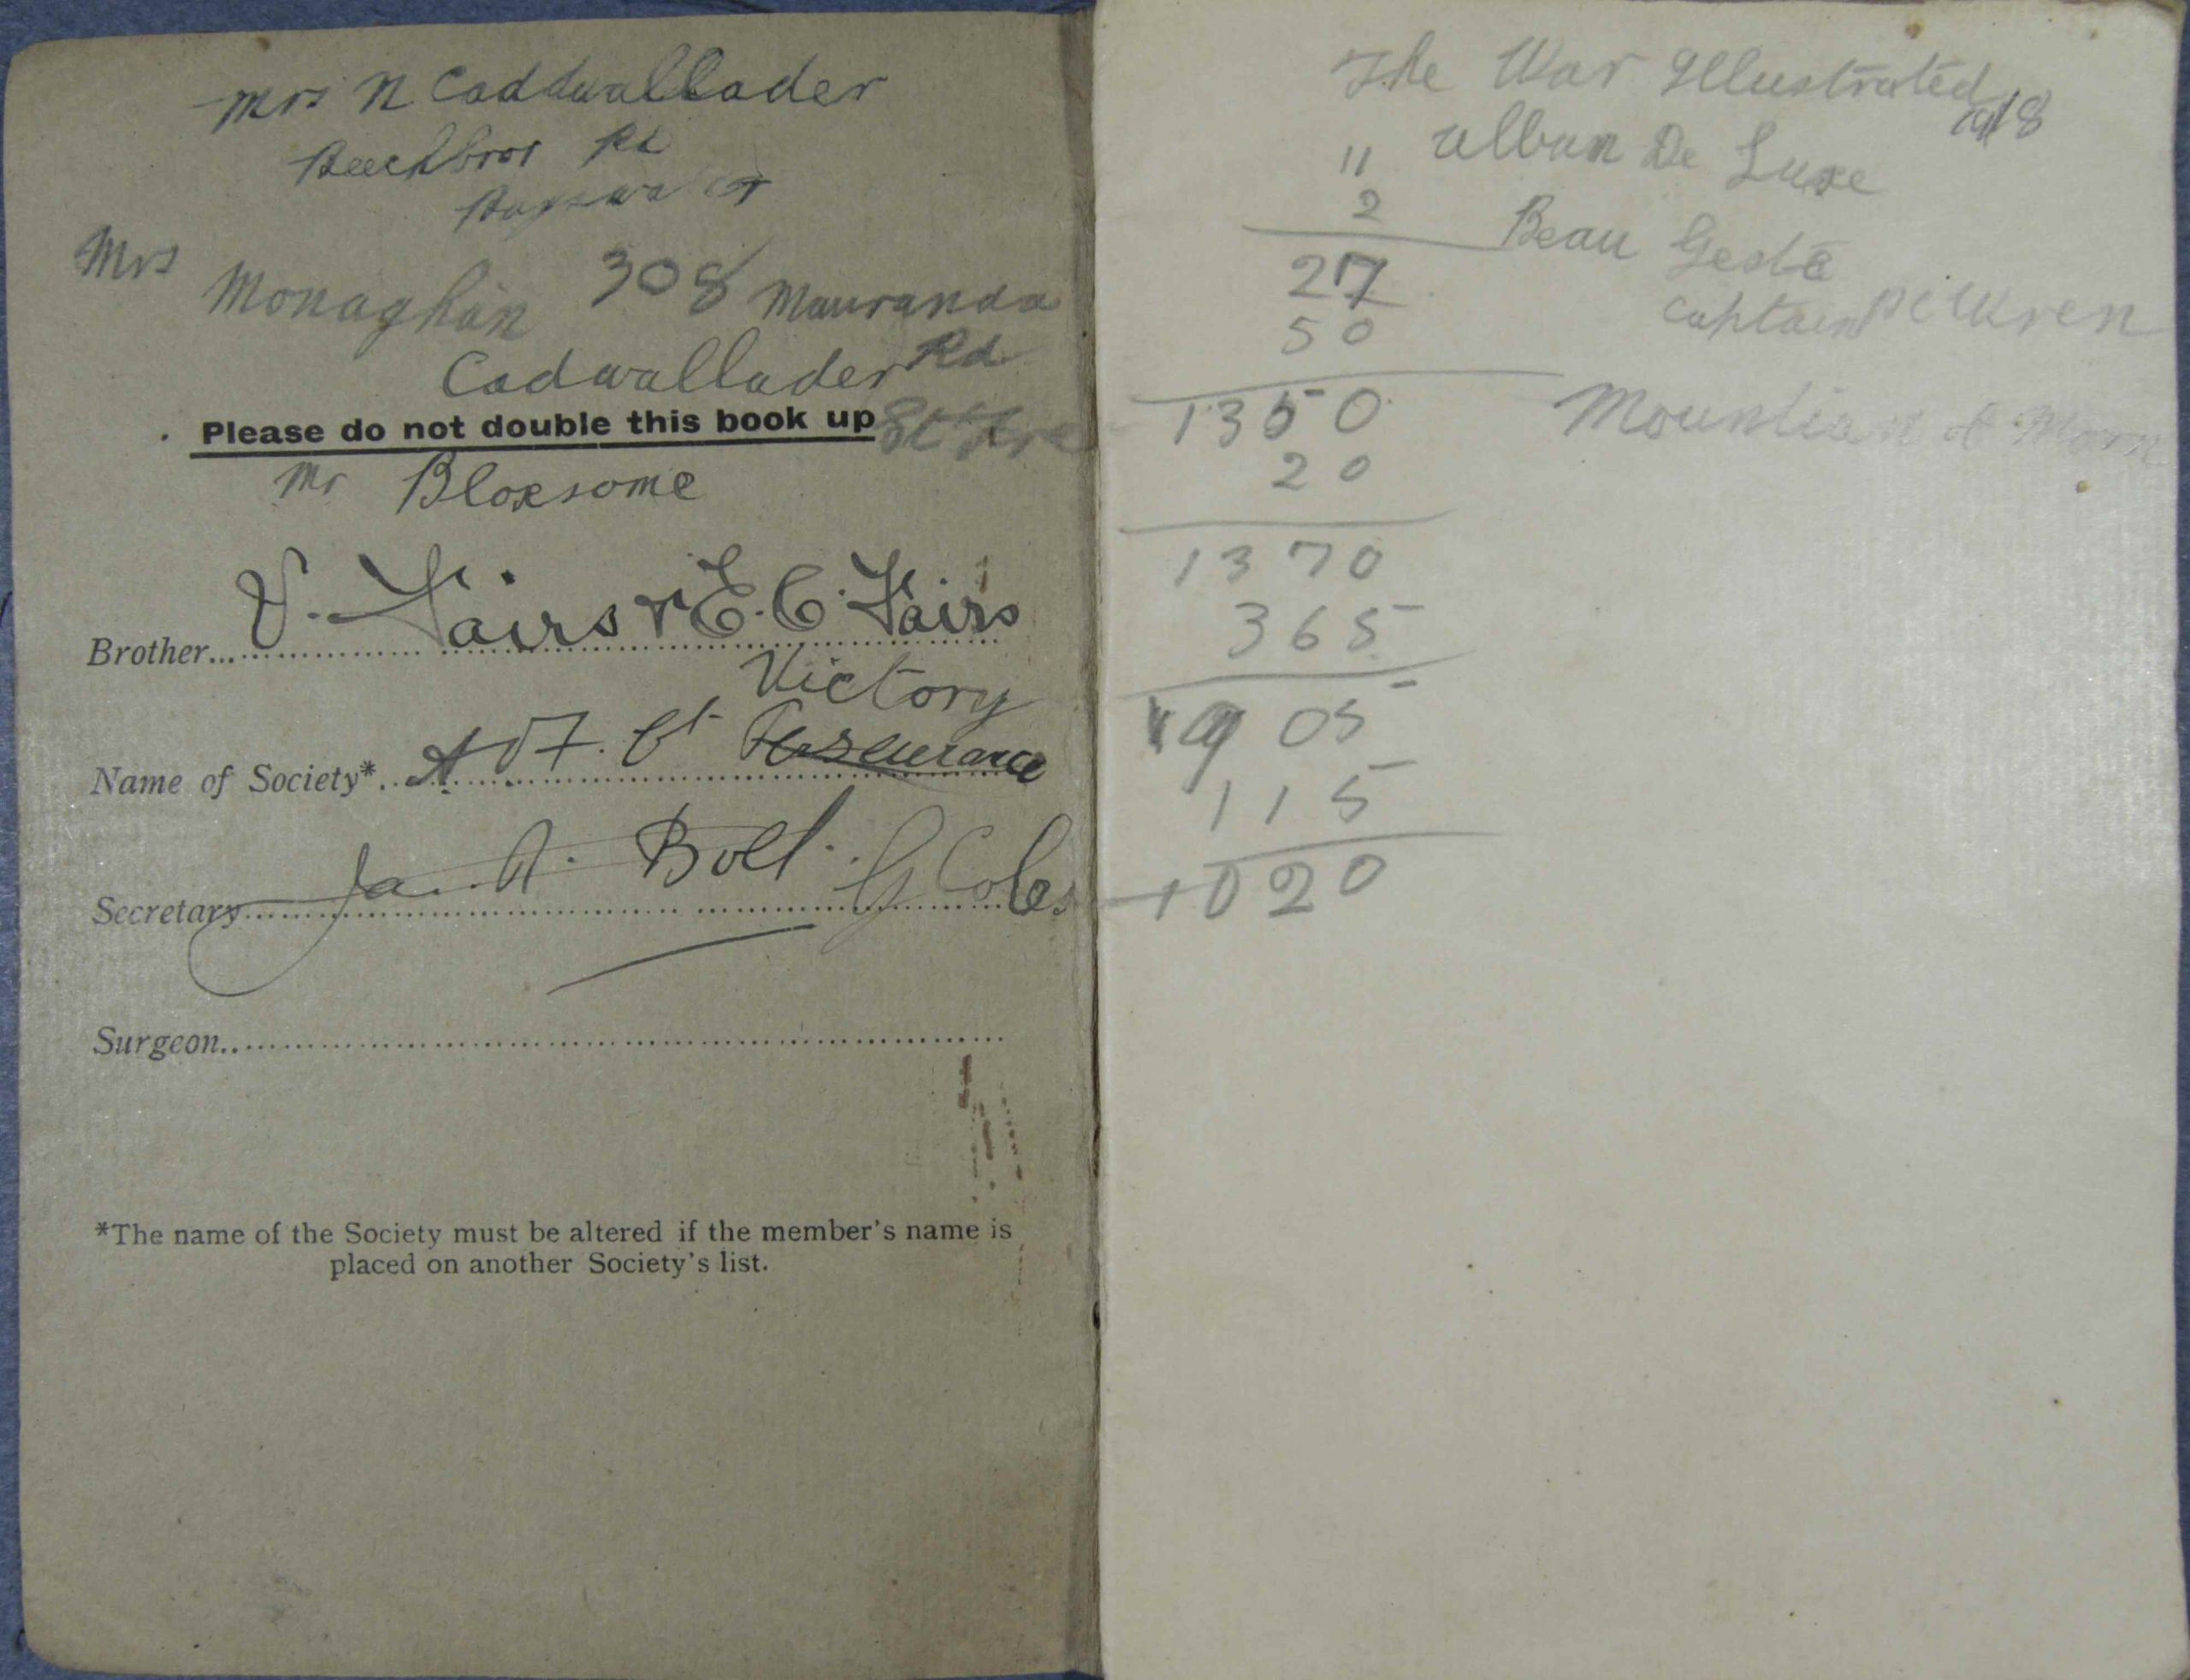 Mrs N Caddwallader
Beechboro Rd
Bayswater
Mrs
Monaghan 308 Mauranda
Rd
Cadwallader
Please do not double this book up
Mr Bloxsome
Brother... V. Fairs & E. C. Fairs
Victory
Name of Society*... Perseverance
Secretary... Bolt. G Coles
Surgeon...
*The name of the Society must be altered if the member's name is
placed on another Society's list.
The War Illustrated
1918
" Album De Luxe
2
Beau Geste
27
Captain
50
1350
Mountian of Morn
20
1370
365
905
115
1020